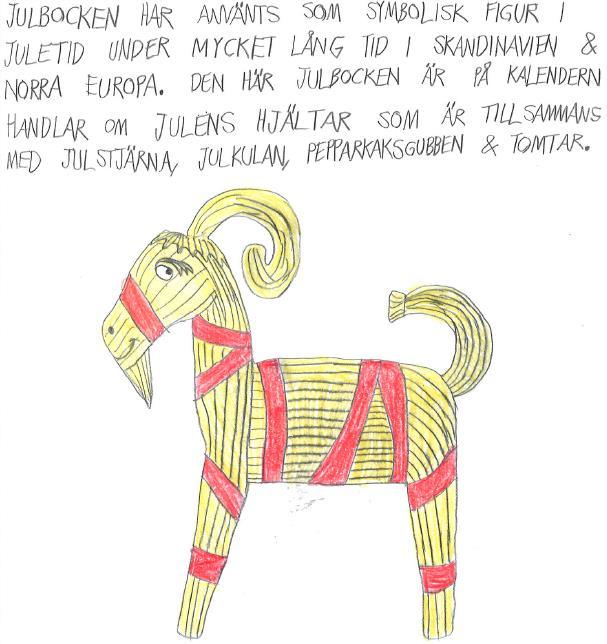 JULBOCKEN HAR ANVÄNTS SOM SYMBOLISK FIGUR I
JULETID UNDER MYCKET LÅNG TID I SKANDINAVIEN &
NORRA EUROPA. DEN HÄR JULBOCKEN ÄR PÅ KALENDERN
HANDLAR OM JULENS HJÄLTAR SOM ÄR TILLSAMMANS
MED JULSTJÄRNA, JULKULAN, PEPPARKAKSGUBBEN & TOMTAR.